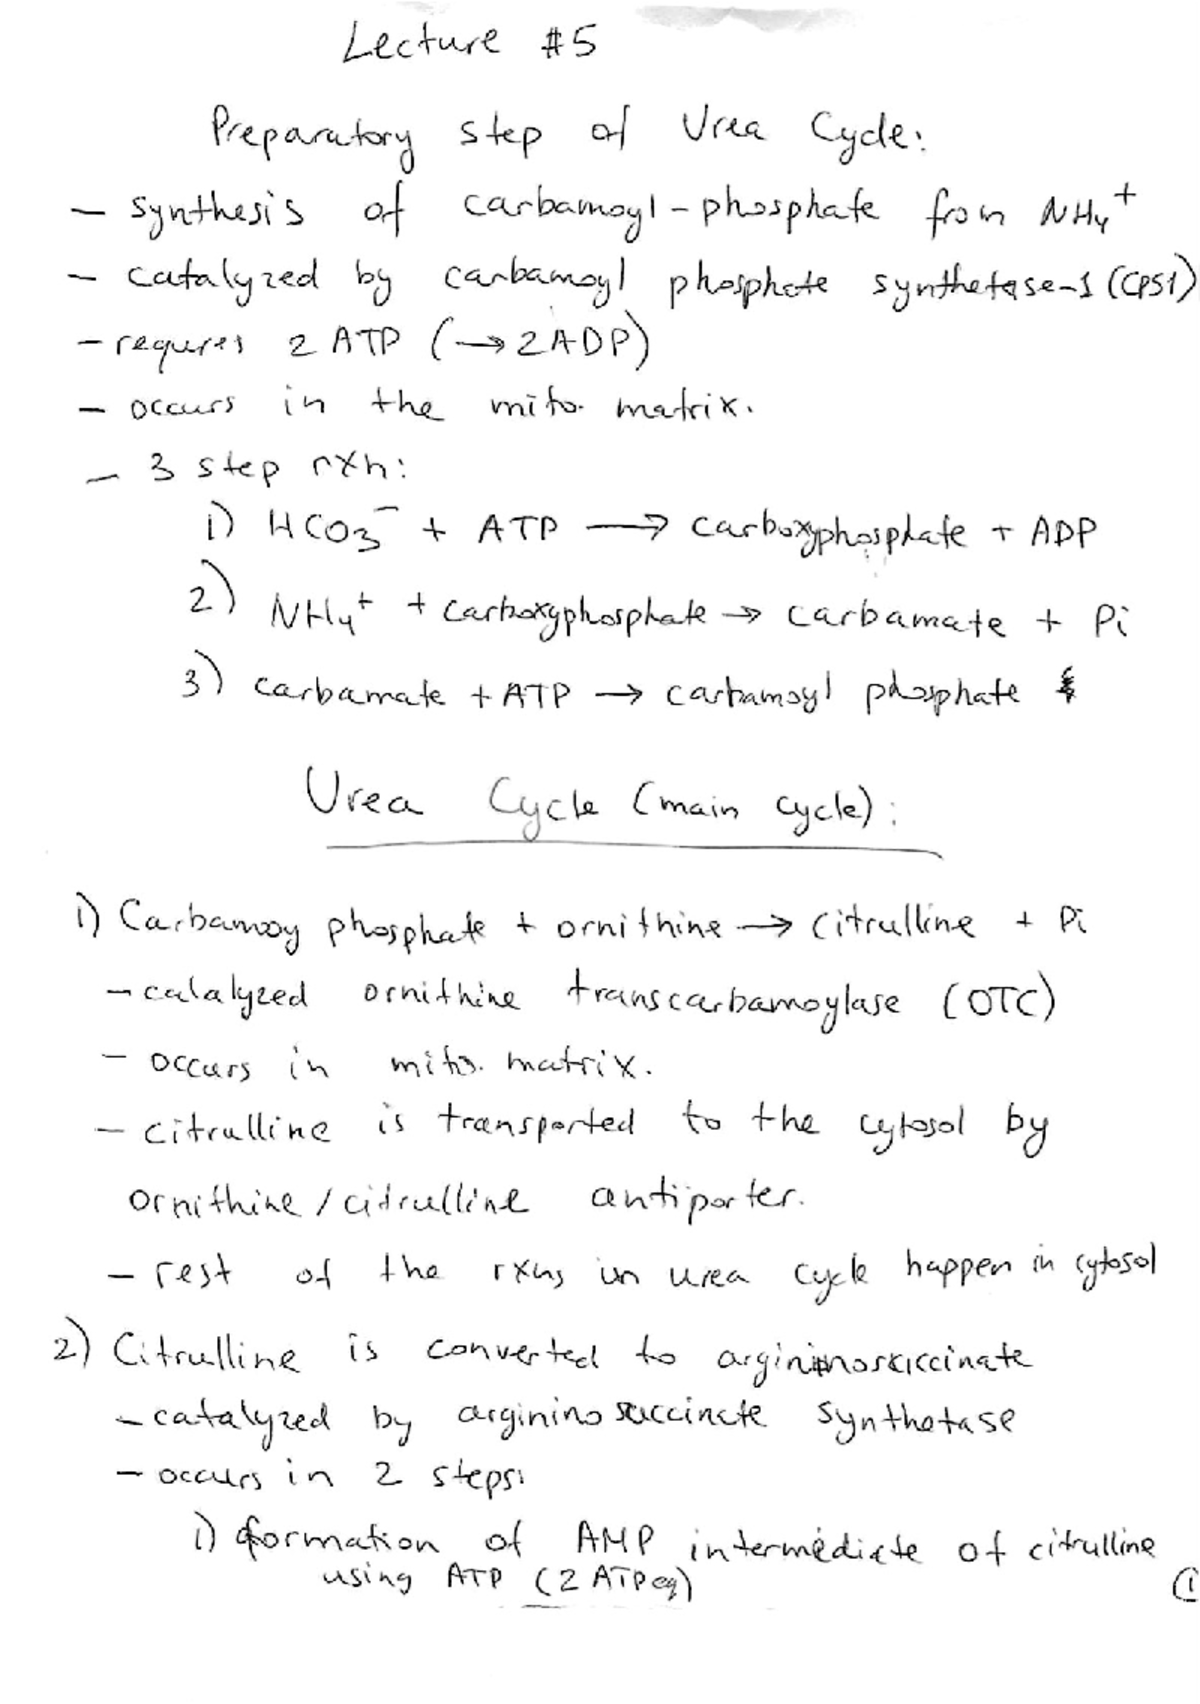 Lecture #5
Preparatory step of Urea Cycle:
- synthesis of carbamoyl-phosphate from NH4+
- catalyzed by carbamoyl phosphate synthetase-1 (CPS1)
- requires 2 ATP (→ 2ADP)
- occurs in the mito. matrix.
- 3 step rxn:
1) HCO3- + ATP → carboxyphosphate + ADP
2) NH4+ + carboxyphosphate → carbamate + Pi
3) carbamate + ATP → carbamoyl phosphate
Urea Cycle (main cycle):
1) Carbamoy phosphate + ornithine → citrulline + Pi
- calalyzed ornithine transcarbamoylase (OTC)
- occurs in mito. matrix.
- citrulline is transported to the cytosol by
ornithine/citrulline antiporter.
- rest of the rxns in urea cycle happen in cytosol
2) Citrulline is converted to argininosuccinate
- catalyzed by argininosuccinate synthetase
- occurs in 2 steps:
1) formation of AMP intermediate of citrulline
using ATP (2 ATP eq)
1